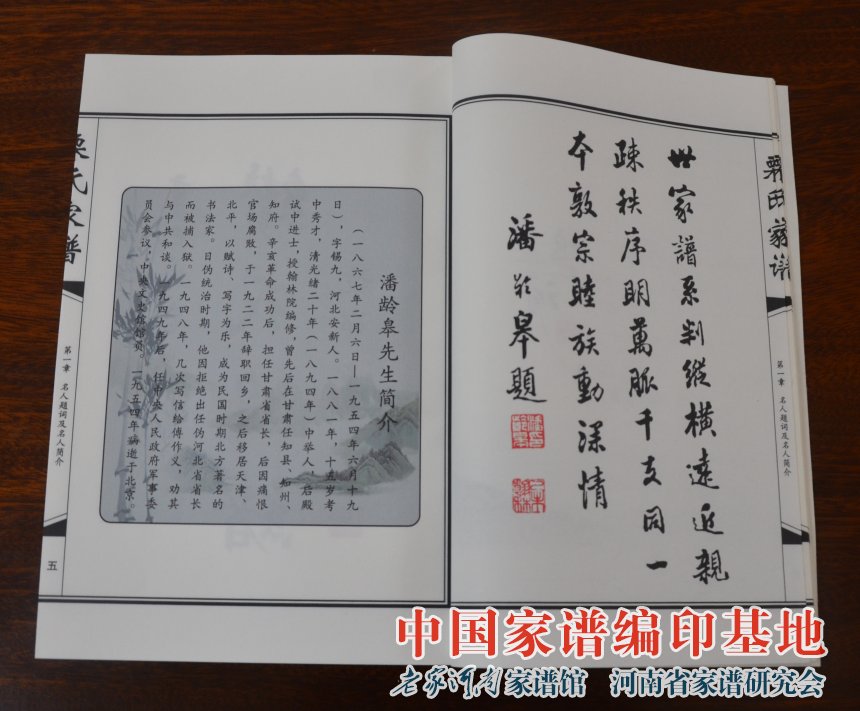 栗氏家谱
第一章 名人题词及名人简介
世家譜系判縱橫遠近親
疎秩序明萬脈千支同一
本敦宗睦族動深情
潘龄皋題
潘龄皋先生简介
（一八六七年二月六日—一九五四年六月十九
日），字锡九，河北安新人。一八八一年，十五岁考
中秀才，清光绪二十年（一八九四年）中举人，后殿
试中进士，授翰林院编修，曾先后在甘肃任知县、知州、
知府。辛亥革命成功后，担任甘肃省省长，后因痛恨
官场腐败，于一九二二年辞职回乡，之后移居天津、
北平，以赋诗、写字为乐，成为民国时期北方著名的
书法家。日伪统治时期，他因拒绝出任伪河北省省长
而被捕入狱。一九四八年，几次写信给傅作义，劝其
与中共和谈。一九四九年后，任中央人民政府军事委
员会参议，中央文史馆馆员。一九五四年病逝于北京。
栗氏家谱
第一章 名人题词及名人简介
五
中国家谱编印基地
老家河南家谱馆 河南省家谱研究会